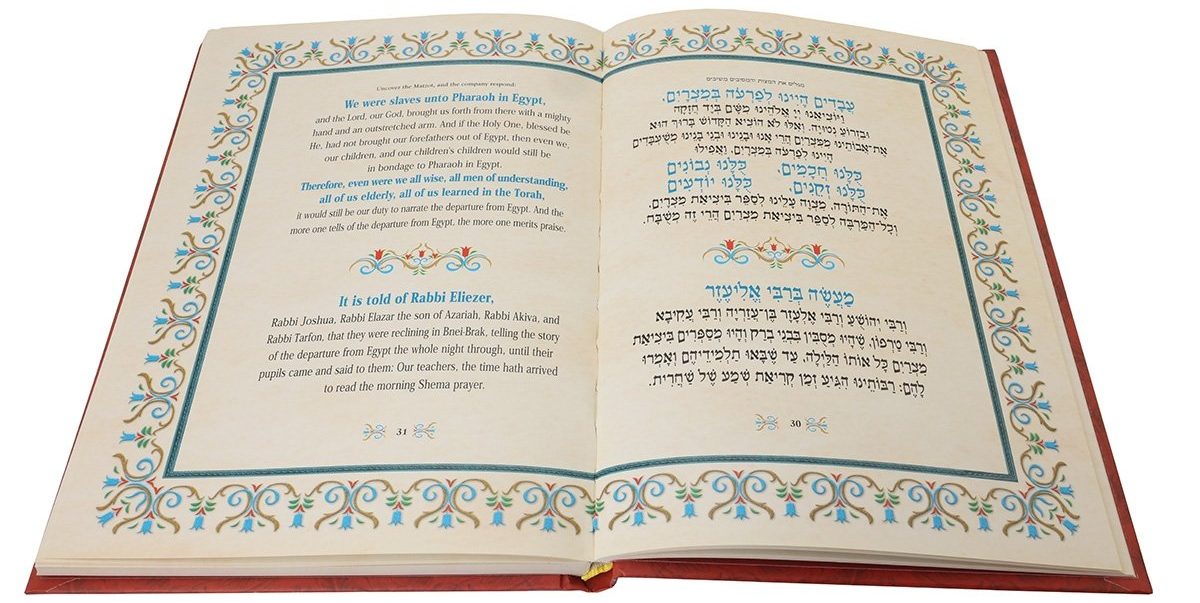 מגלים את המצות והמסובים משיבים
עֲבָדִים הָיִינוּ לְפַרְעֹה בְּמִצְרָיִם,
וַיּוֹצִיאֵנוּ יְיָ אֱלֹהֵינוּ מִשָּׁם בְּיָד חֲזָקָה
וּבִזְרוֹעַ נְטוּיָה, וְאִלּוּ לֹא הוֹצִיא הַקָּדוֹשׁ בָּרוּךְ הוּא
אֶת-אֲבוֹתֵינוּ מִמִּצְרַיִם הֲרֵי אָנוּ וּבָנֵינוּ וּבְנֵי בָנֵינוּ מְשֻׁעְבָּדִים
הָיִינוּ לְפַרְעֹה בְּמִצְרָיִם, וַאֲפִילוּ
כֻּלָּנוּ חֲכָמִים, כֻּלָּנוּ נְבוֹנִים
כֻּלָּנוּ זְקֵנִים, כֻּלָּנוּ יוֹדְעִים
אֶת-הַתּוֹרָה, מִצְוָה עָלֵינוּ לְסַפֵּר בִּיצִיאַת מִצְרַיִם,
וְכָל-הַמַּרְבֶּה לְסַפֵּר בִּיצִיאַת מִצְרַיִם הֲרֵי זֶה מְשֻׁבָּח.
מַעֲשֶׂה בְּרַבִּי אֱלִיעֶזֶר
וְרַבִּי יְהוֹשֻׁעַ וְרַבִּי אֶלְעָזָר בֶּן-עֲזַרְיָה וְרַבִּי עֲקִיבָא
וְרַבִּי טַרְפוֹן, שֶׁהָיוּ מְסֻבִּין בִּבְנֵי בְרַק וְהָיוּ מְסַפְּרִים בִּיצִיאַת
מִצְרַיִם כָּל אוֹתוֹ הַלַּיְלָה, עַד שֶׁבָּאוּ תַלְמִידֵיהֶם וְאָמְרוּ
לָהֶם: רַבּוֹתֵינוּ הִגִּיעַ זְמַן קְרִיאַת שְׁמַע שֶׁל שַׁחֲרִית.
30
Uncover the Matzot, and the company respond:
We were slaves unto Pharaoh in Egypt,
and the Lord, our God, brought us forth from there with a mighty
hand and an outstretched arm. And if the Holy One, blessed be
He, had not brought our forefathers out of Egypt, then even we,
our children, and our children's children would still be
in bondage to Pharaoh in Egypt.
Therefore, even were we all wise, all men of understanding,
all of us elderly, all of us learned in the Torah,
it would still be our duty to narrate the departure from Egypt. And the
more one tells of the departure from Egypt, the more one merits praise.
It is told of Rabbi Eliezer,
Rabbi Joshua, Rabbi Elazar the son of Azariah, Rabbi Akiva, and
Rabbi Tarfon, that they were reclining in Bnei-Brak, telling the story
of the departure from Egypt the whole night through, until their
pupils came and said to them: Our teachers, the time hath arrived
to read the morning Shema prayer.
31